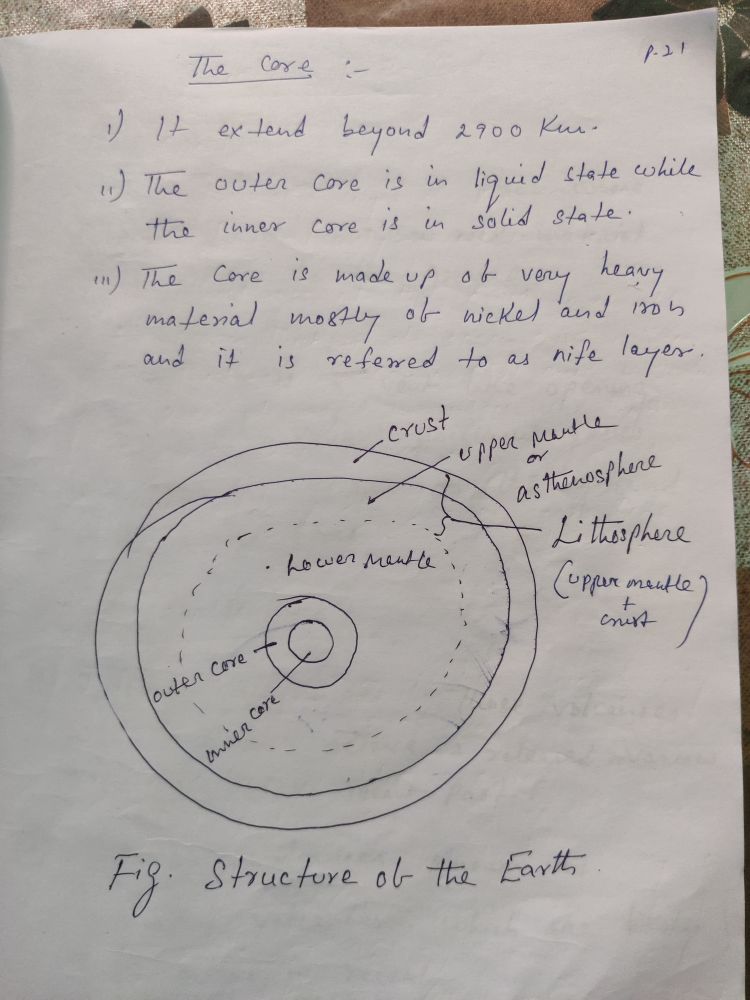 P-21
The Core :-
i) It extend beyond 2900 Km.
ii) The outer core is in liquid state while
the inner core is in solid state.
iii) The Core is made up of very heavy
material mostly of nickel and iron
and it is referred to as nife layer.
crust
upper mantle
or
asthenosphere
Lithosphere
(upper mantle
+
crust)
Lower mantle
outer core
inner core
Fig. Structure of the Earth